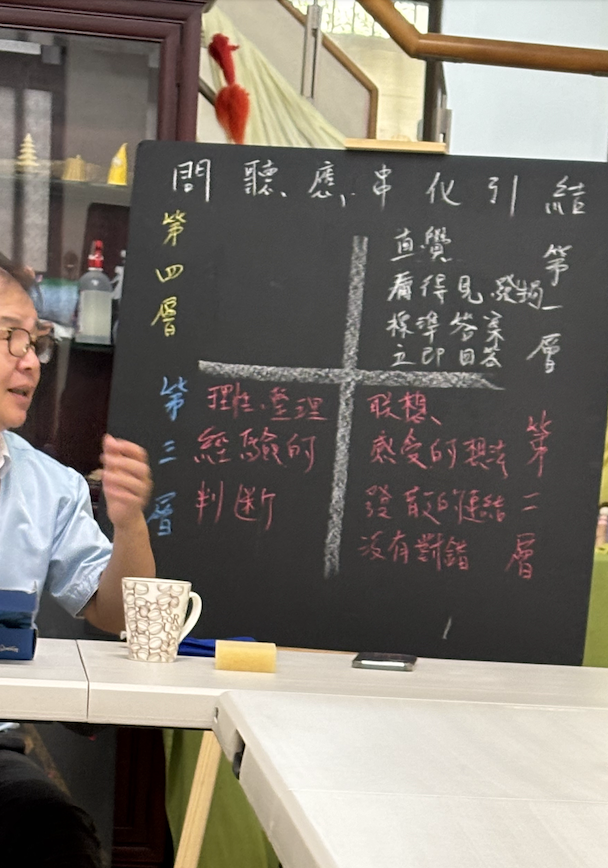 問 聽、應、串 化 引 結
第四層
直覺
看得見、
標準答案
立即回答
第一層
第三層
理性、整理
經驗的
判斷
联想、
感受的想法
發散的連結
沒有對錯
第二層